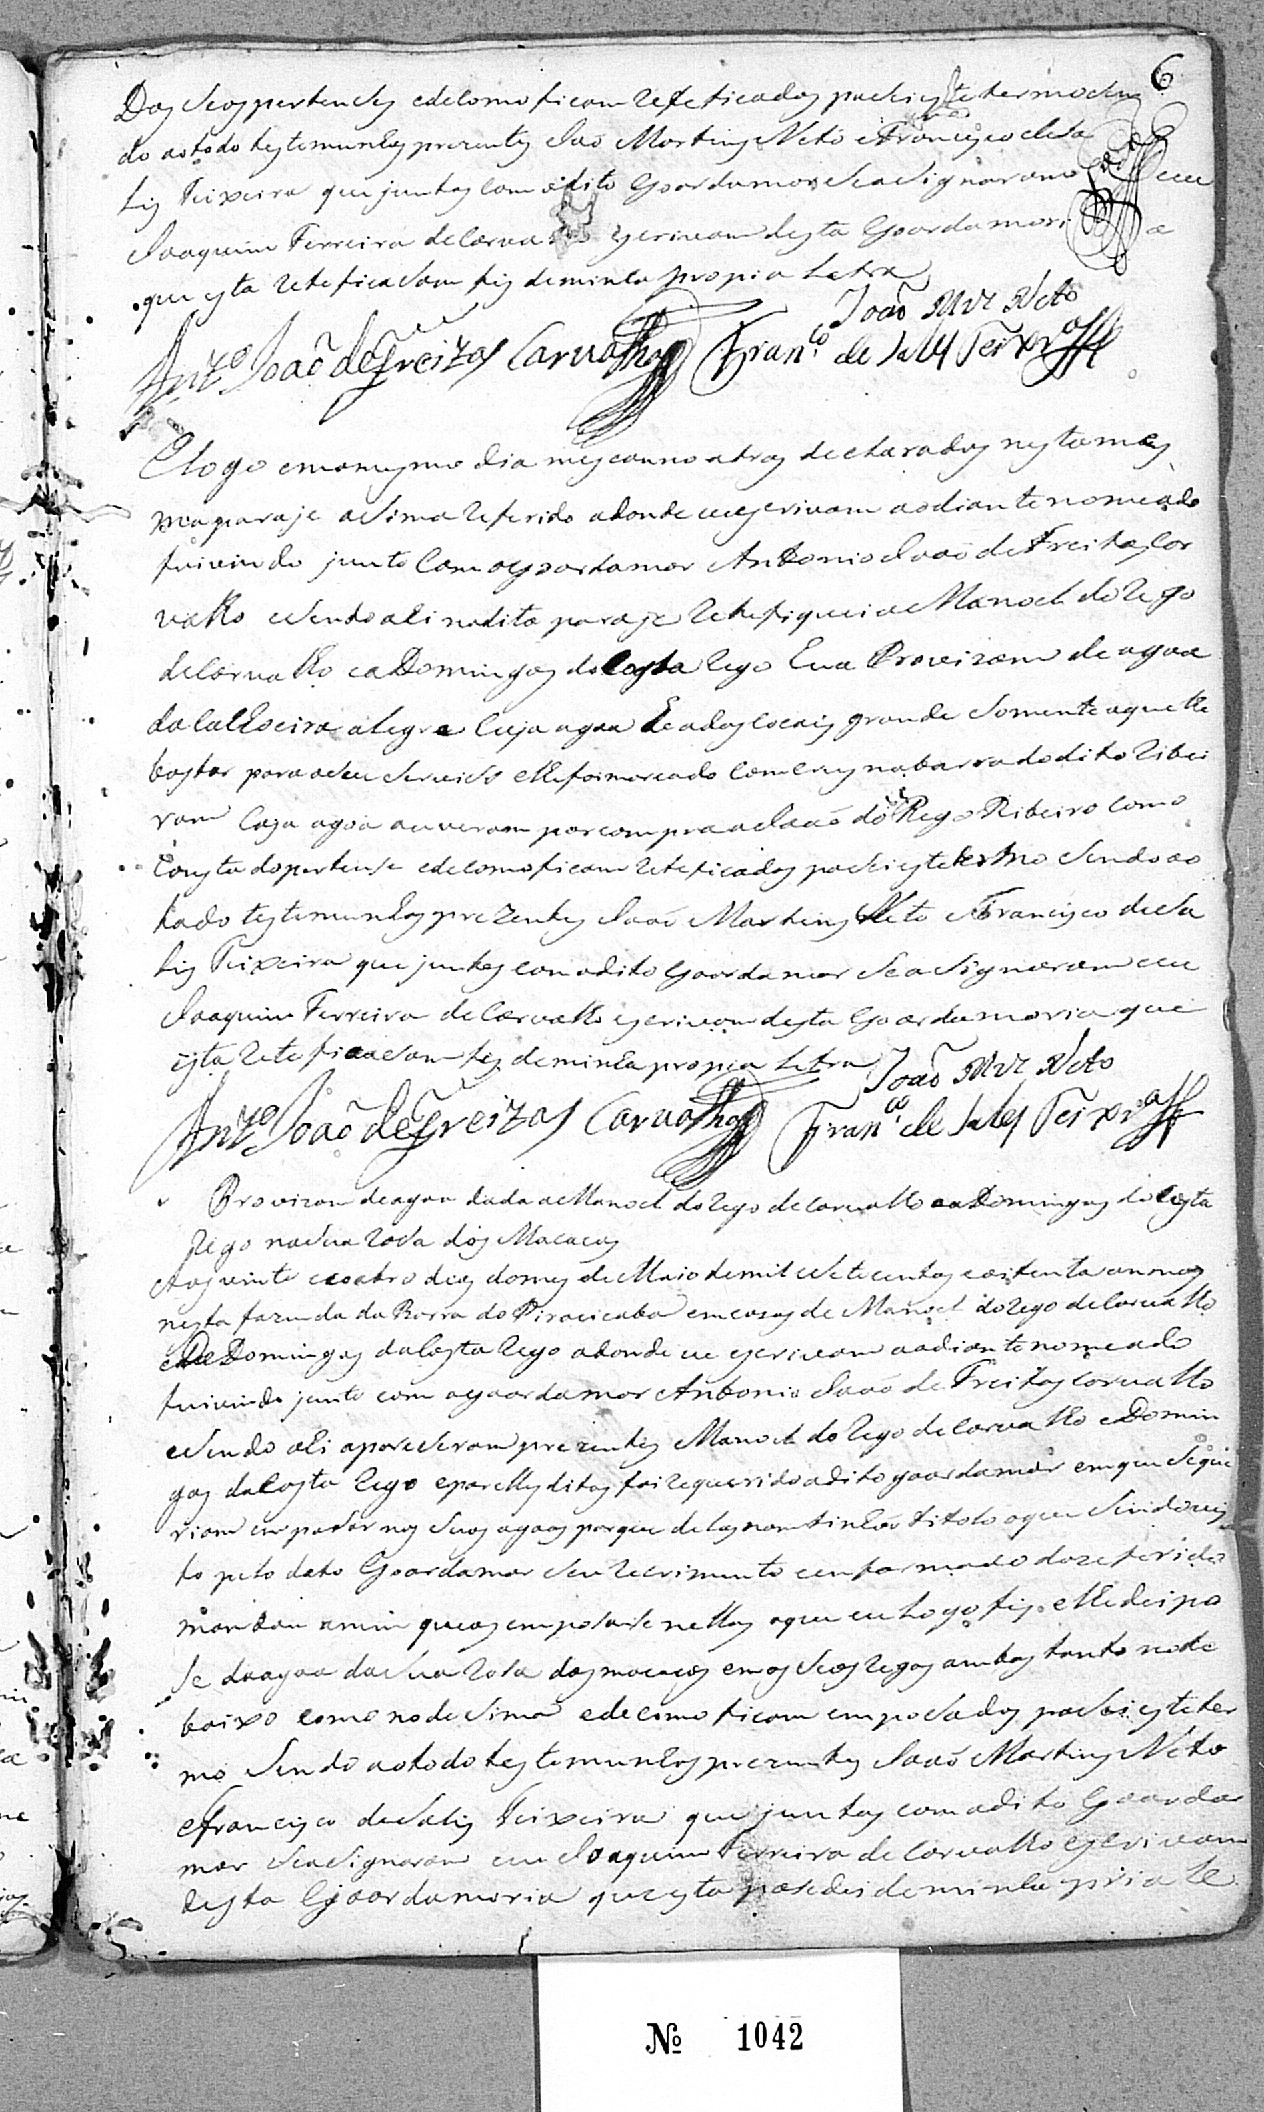 6
Dos Seos pertenses edecomo ficam Reteficados pasei este termo Sen
do atodo testemunhas prezentes Joaõ Martins Neto e Francisco deSa
lis Teixeira que juntos Com odito Goardamor Se asignaram eeu
Joaquim Ferreira deCarvalho escrivam desta Goardamori a
que esta Reteficasam fis deminha propia Letra
João Miz Neto
Ant.º João de Freitas Carvalho Fran.co de Sales Teixr.ª
E logo emomesmo dia mes eanno atras declarados nesta mes
ma paraje asima Referido adonde eu escrivam aodiante nomeado
fui vindo junto Com oGoardamor Antonio Joaõ de Freitas Car
valho esendo ali nadita paraje Retefiquei a Manoel do Rego
deCarvalho eaDomingos daCosta Rego Eua Provizam de agoa
da Calhoeira alegre Cuja agoa he ados cocais grande Somente aque lhe
bastar para oSeu Serviso elhe foi marcado Com Crus na barra dodito Ribei
ram Cuja agoa ouveram por compra a Joaõ do Rego Ribeiro Como
Consta dopertense edecomo ficam Reteficados pasei este termo Sendo ao
todo testemunhas prezentes Joaõ Martins Neto e Francisco deSa
lis Teixeira que juntos com odito Goardamor Se asignaram eeu
Joaquim Ferreira de Carvalho escrivam desta Goardamoria que
esta Reteficasam fis deminha propia Letra
João Miz Neto
Ant.º João de Freitas Carvalho Fran.co de Sales Teixr.ª
Provizam deagoa dada aManoel do Rego deCarvalho eaDomingos da Costa
Rego nasua Rosa dos Macacos
Aos vinte ecoatro dias domes de Maio demil esetecentos eoitenta annos
nesta fazenda da Barra do Piracicaba emcazas de Manoel do Rego deCarvalho
edeDomingos daCosta Rego adonde eu escrivam aodiante nomeado
fui vindo junto com ogoardamor Antonio Joaõ de Freitas Carvalho
esendo ali apareseram prezentes Manoel do Rego deCarvalho eDomin
gos daCosta Rego eporelles ditos foi requerido aodito goardamor emque Seque
riam emposar nas Suas agoas porque delas nam tinhaõ titolo oque Sendo vis
to pelo dito Goardamor Seu Recrimento emformado do referido
mandou amim queos emposase nellas oque eu Logo fis elhe dei po
se daagoa dasua Rosa dos macacos emos Seos Regos ambos tanto node
baixo como nodesima edecomo ficam emposados pasei este ter
mo Sendo aotodo testemunhas prezentes Joaõ Martins Neto
eFrancisco deSalis Teixeira que juntos com odito Goarda
mor Se asignaram eeu Joaquim Ferreira de Carvalho escrivam
desta Goardamoria que esta pose dei deminha pria Le
Nº 1042